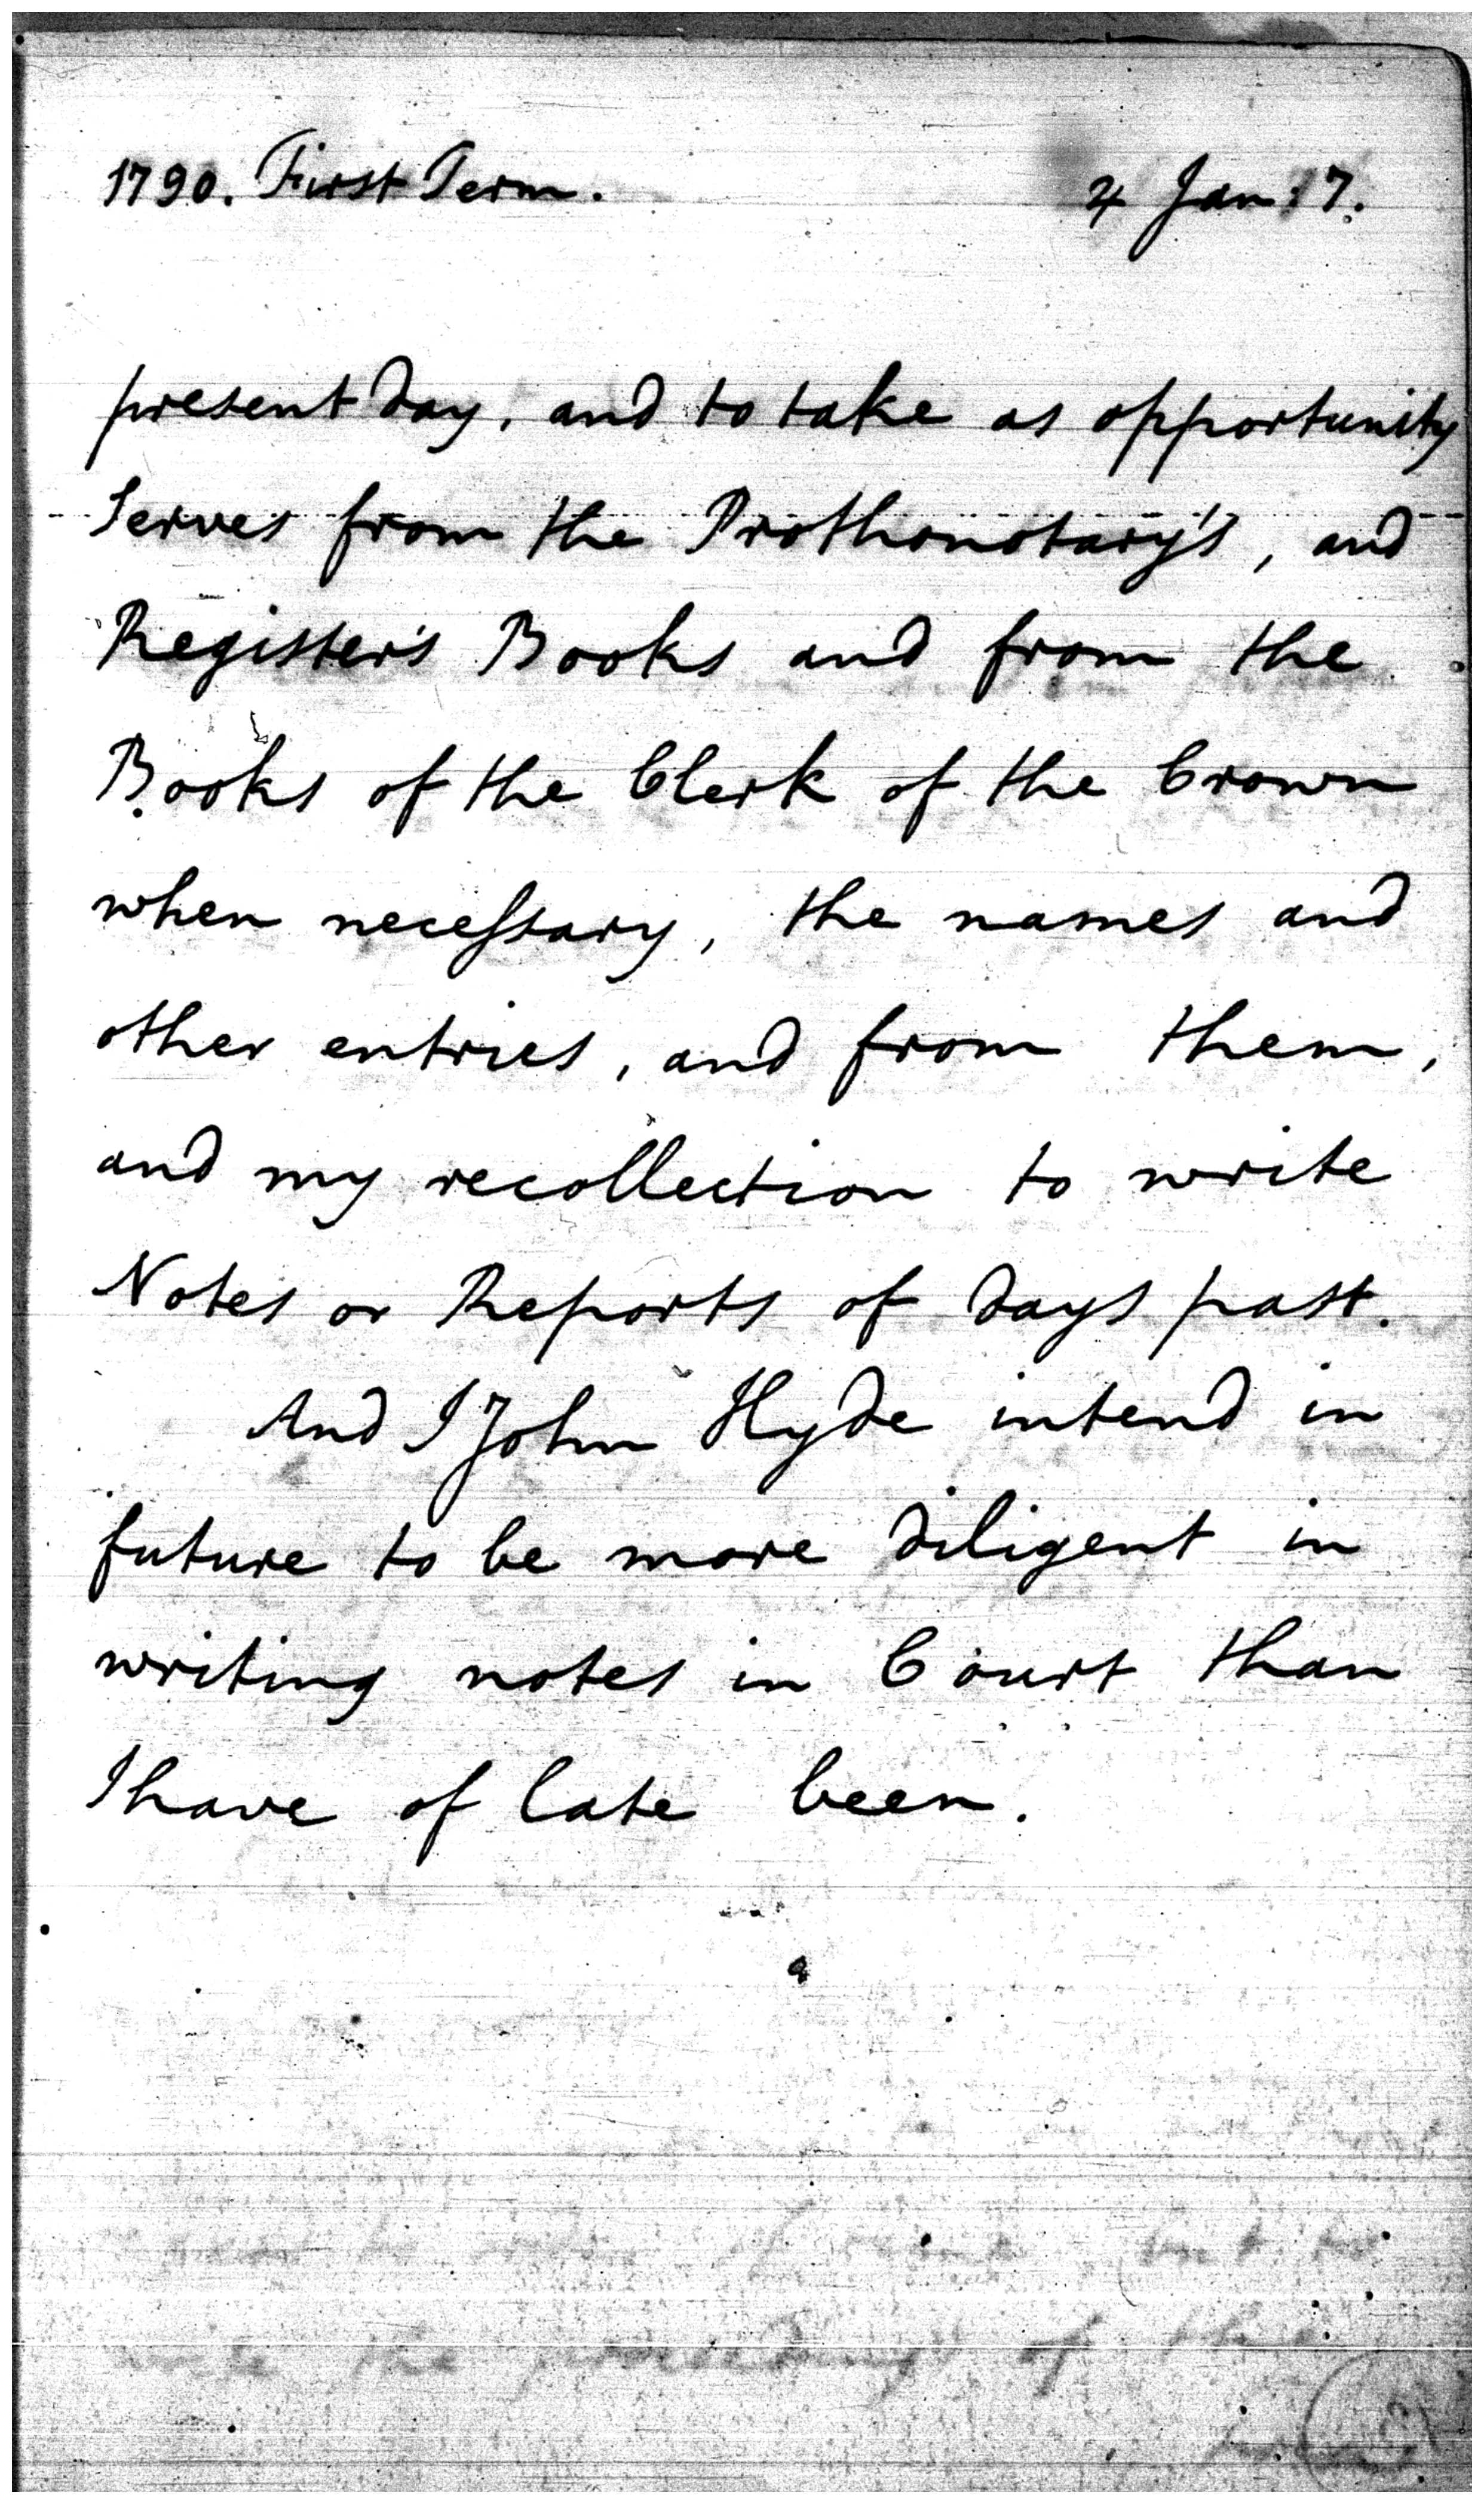 1790. First Term. 4 Jan: 7.
present day, and to take as opportunity
Serves from the Prothonotary's, and
Register's Books and from the
Books of the Clerk of the Crown
when neceſsary, the names and
other entries, and from them,
and my recollection to write
Notes or Reports of days past.
And I John Hyde intend in
future to be more diligent in
writing notes in Court than
I have of late been.